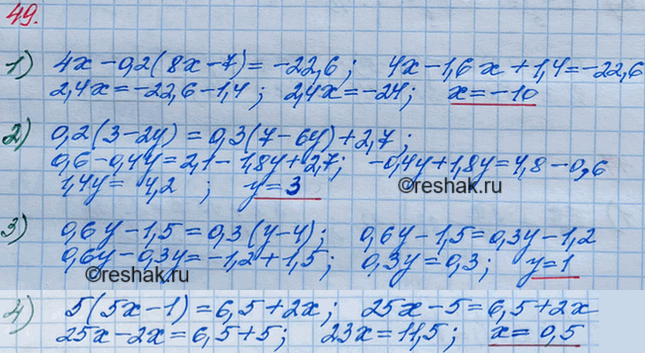 49.
1) 4x - 0,2(8x - 7) = -22,6; 4x - 1,6x + 1,4 = -22,6
2,4x = -22,6 - 1,4; 2,4x = -24; x = -10
2) 0,2(3 - 2y) = 0,3(7 - 6y) + 2,7;
0,6 - 0,4y = 2,1 - 1,8y + 2,7; -0,4y + 1,8y = 4,8 - 0,6
1,4y = 4,2; y = 3
©reshak.ru
3) 0,6y - 1,5 = 0,3(y - 4); 0,6y - 1,5 = 0,3y - 1,2
0,6y - 0,3y = -1,2 + 1,5; 0,3y = 0,3; y = 1
©reshak.ru
4) 5(5x - 1) = 6,5 + 2x; 25x - 5 = 6,5 + 2x
25x - 2x = 6,5 + 5; 23x = 11,5; x = 0,5